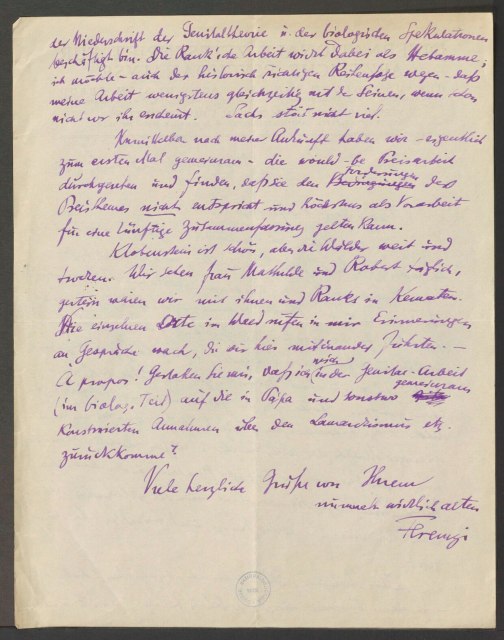 der Niederschrift der Genitaltheorie u. der biologischen Spekulationen
beschäftigt bin. Die Rank'sche Arbeit wirkt dabei als Hebamme;
ich möchte – auch der historisch richtigen Reihenfolge wegen – daß
meine Arbeit wenigstens gleichzeitig mit der Seinen, wenn schon
nicht vor ihr erscheint. Sachs stört nicht viel.
Unmittelbar nach meiner Ankunft haben wir – eigentlich
zum ersten Mal gemeinsam – die would-be Preisarbeit
durchgenommen und finden, daß sie den Forderungen des
Preisthemas nicht entspricht und höchstens als Vorarbeit
für eine künftige Zusammenfassung gelten kann.
Klobenstein ist schön, aber die Wälder weit und
trocken. Wir sehen Frau Mathilde und Robert täglich,
gestern waren wir mit ihnen und Ranks in Kematen.
Die einzelnen Orte im Wald rufen in mir Erinnerungen
an Gespräche wach, die wir hier miteinander führten. –
À propos! Gestatten Sie mir, daß ich mich in der Genital-Arbeit
(im biolog. Teil) auf die in Pápa und sonstwo gemeinsam
konstruierten Annahmen über den Lamarckismus etz.
zurückkomme?
Viele herzliche Grüße von Ihrem
nunmehr wirklich alten
Ferenczi